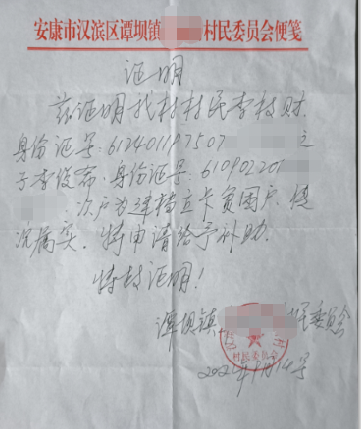 安康市汉滨区谭坝镇 村民委员会便笺
证明
兹证明我村村民李枝财.
身份证号:612401197507 之
子李俊 .身份证号:610902201
.次户为建档立卡贫困户.情
况属实.特申请给予补助.
特此证明!
谭坝镇 民委会
村民委员会
2021年9月14号